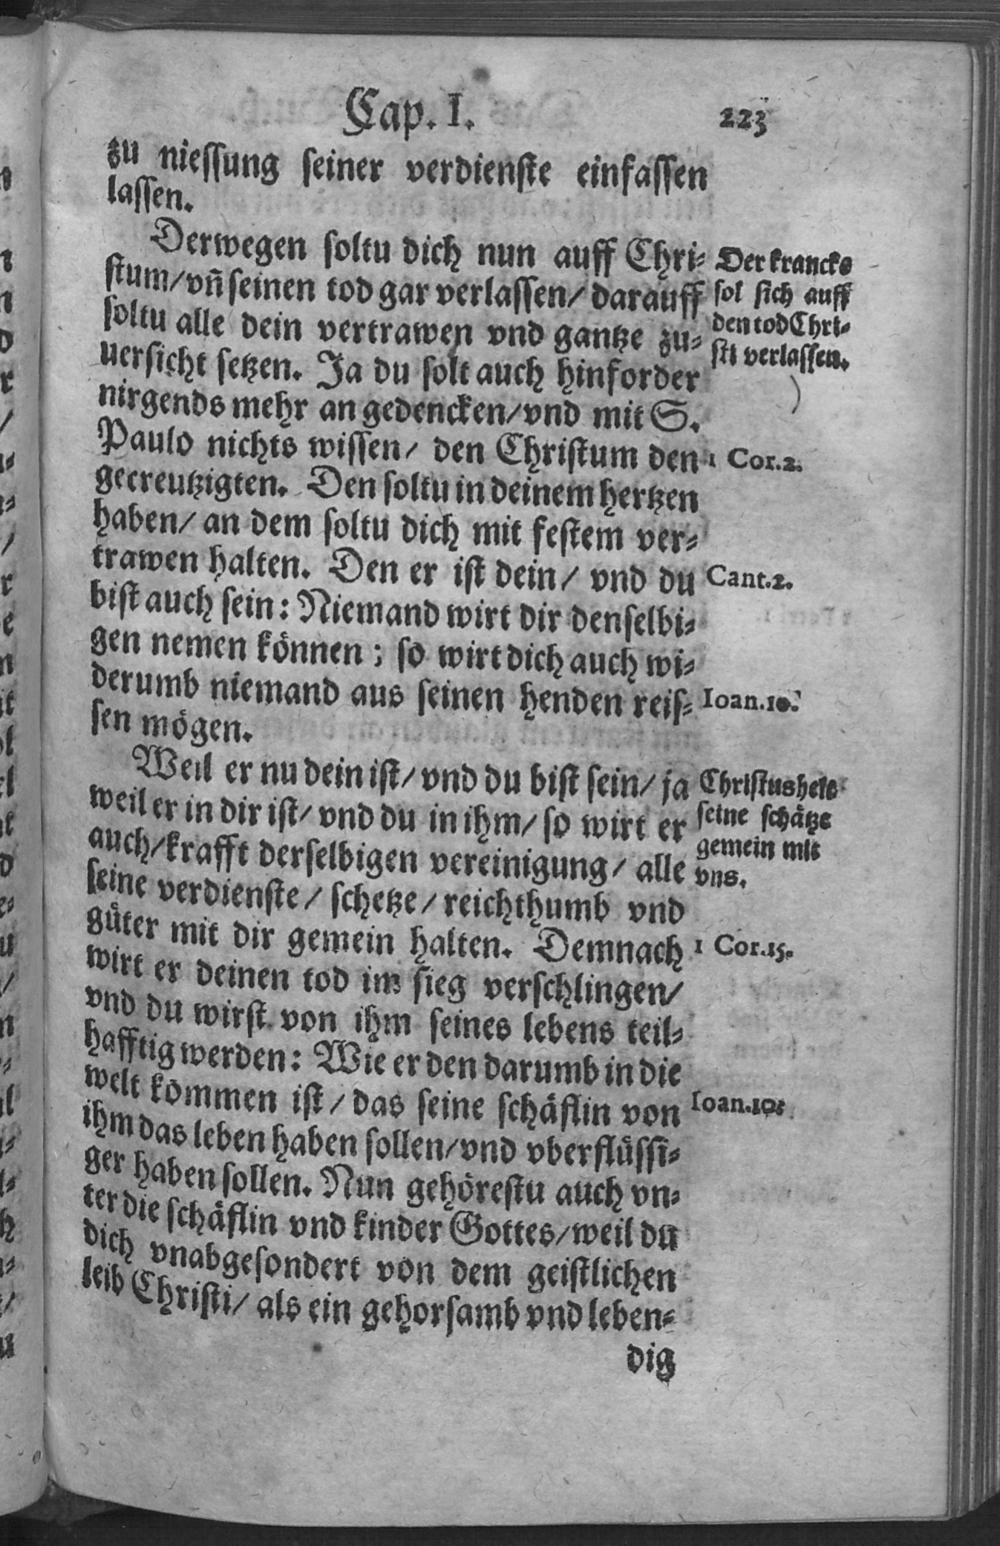 Cap. I. 223
zu niessung seiner verdienste einfassen
lassen.
Derwegen soltu dich nun auff Chri⸗
stum/vñ seinen tod gar verlassen/darauff
soltu alle dein vertrawen vnd gantze zu⸗
uersicht setzen. Ja du solt auch hinforder
nirgends mehr an gedencken/vnd mit S.
Paulo nichts wissen/ den Christum den
gecreutzigten. Den soltu in deinem hertzen
haben/ an dem soltu dich mit festem ver⸗
trawen halten. Den er ist dein/ vnd du
bist auch sein: Niemand wirt dir denselbi⸗
gen nemen können; so wirt dich auch wi⸗
derumb niemand aus seinen henden reis⸗
sen mögen.
Weil er nu dein ist/vnd du bist sein/ ja
weil er in dir ist/ vnd du in ihm/ so wirt er
auch/krafft derselbigen vereinigung/ alle
seine verdienste/ schetze/ reichthumb vnd
güter mit dir gemein halten. Demnach
wirt er deinen tod im sieg verschlingen/
vnd du wirst von ihm seines lebens teil⸗
hafftig werden: Wie er den darumb in die
welt kommen ist/ das seine schäflin von
ihm das leben haben sollen/vnd vberflüssi⸗
ger haben sollen. Nun gehörestu auch vn⸗
ter die schäflin vnd kinder Gottes/weil du
dich vnabgesondert von dem geistlichen
leib Christi/ als ein gehorsamb vnd leben⸗
dig
Der krancke
sol sich auff
den tod Chri⸗
sti verlassen.
1 Cor.2.
Cant.2.
Ioan.10.
Christus helt
seine schätze
gemein mit
vns.
1 Cor.15.
Ioan.10.